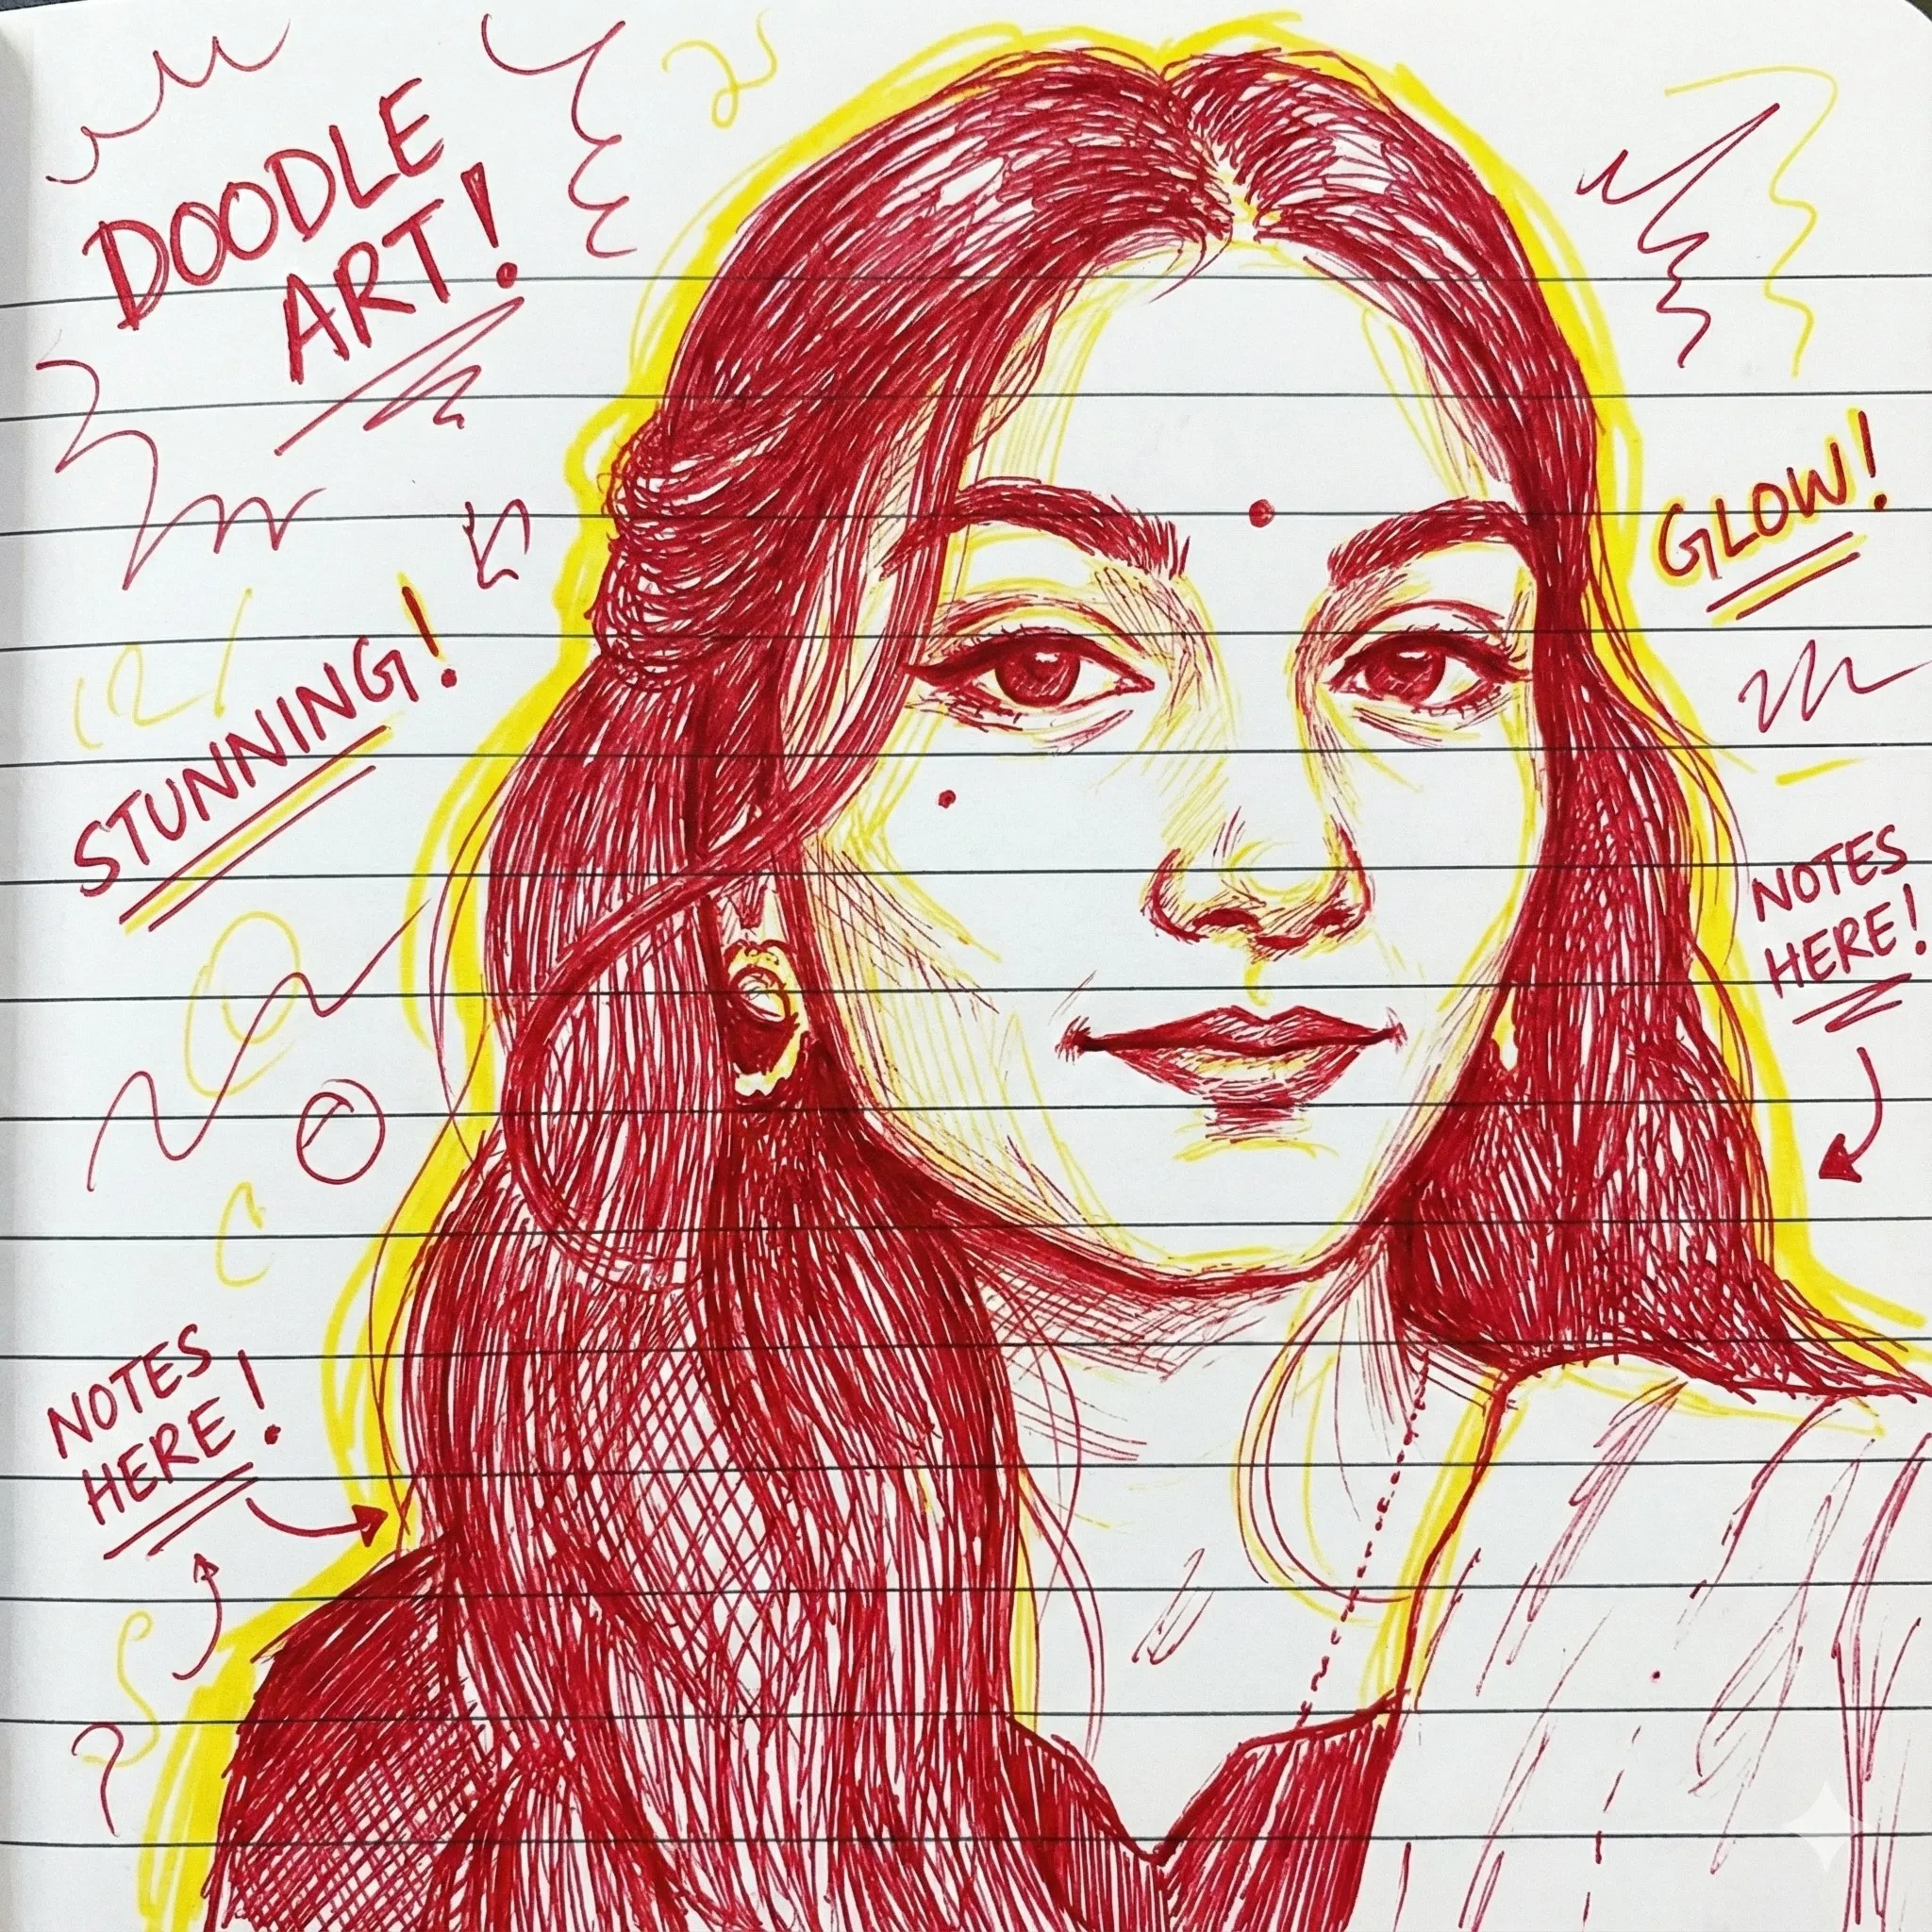 DOODLE
ART!
GLOW!
STUNNING!
NOTES
HERE!
NOTES
HERE!